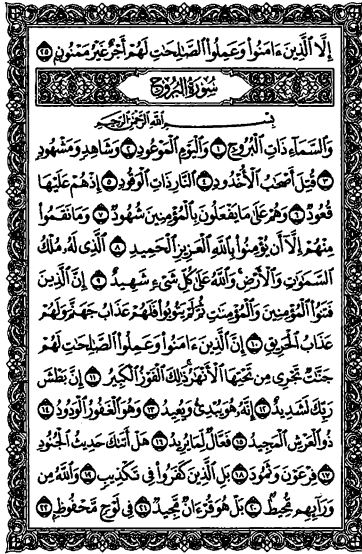 إِلَّا ٱلَّذِينَ ءَامَنُوا۟ وَعَمِلُوا۟ ٱلصَّٰلِحَٰتِ لَهُمْ أَجْرٌ غَيْرُ مَمْنُونٍۭ ٢٥
سُورَةُ الْبُرُوجِ
بِسْمِ ٱللَّهِ ٱلرَّحْمَٰنِ ٱلرَّحِيمِ
وَٱلسَّمَآءِ ذَاتِ ٱلْبُرُوجِ ١ وَٱلْيَوْمِ ٱلْمَوْعُودِ ٢ وَشَاهِدٍ وَمَشْهُودٍ
٣ قُتِلَ أَصْحَٰبُ ٱلْأُخْدُودِ ٤ ٱلنَّارِ ذَاتِ ٱلْوَقُودِ ٥ إِذْ هُمْ عَلَيْهَا
قُعُودٌ ٦ وَهُمْ عَلَىٰ مَا يَفْعَلُونَ بِٱلْمُؤْمِنِينَ شُهُودٌ ٧ وَمَا نَقَمُوا۟
مِنْهُمْ إِلَّآ أَن يُؤْمِنُوا۟ بِٱللَّهِ ٱلْعَزِيزِ ٱلْحَمِيدِ ٨ ٱلَّذِى لَهُۥ مُلْكُ
ٱلسَّمَٰوَٰتِ وَٱلْأَرْضِ وَٱللَّهُ عَلَىٰ كُلِّ شَىْءٍ شَهِيدٌ ٩ إِنَّ ٱلَّذِينَ
فَتَنُوا۟ ٱلْمُؤْمِنِينَ وَٱلْمُؤْمِنَٰتِ ثُمَّ لَمْ يَتُوبُوا۟ فَلَهُمْ عَذَابُ جَهَنَّمَ وَلَهُمْ
عَذَابُ ٱلْحَرِيقِ ١٠ إِنَّ ٱلَّذِينَ ءَامَنُوا۟ وَعَمِلُوا۟ ٱلصَّٰلِحَٰتِ لَهُمْ
جَنَّٰتٌ تَجْرِى مِن تَحْتِهَا ٱلْأَنْهَٰرُ ذَٰلِكَ ٱلْفَوْزُ ٱلْكَبِيرُ ١١ إِنَّ بَطْشَ
رَبِّكَ لَشَدِيدٌ ١٢ إِنَّهُۥ هُوَ يُبْدِئُ وَيُعِيدُ ١٣ وَهُوَ ٱلْغَفُورُ ٱلْوَدُودُ ١٤
ذُو ٱلْعَرْشِ ٱلْمَجِيدُ ١٥ فَعَّالٌ لِّمَا يُرِيدُ ١٦ هَلْ أَتَىٰكَ حَدِيثُ ٱلْجُنُودِ
١٧ فِرْعَوْنَ وَثَمُودَ ١٨ بَلِ ٱلَّذِينَ كَفَرُوا۟ فِى تَكْذِيبٍ ١٩ وَٱللَّهُ مِن
وَرَآئِهِم مُّحِيطٌۢ ٢٠ بَلْ هُوَ قُرْءَانٌ مَّجِيدٌ ٢١ فِى لَوْحٍ مَّحْفُوظٍۭ ٢٢